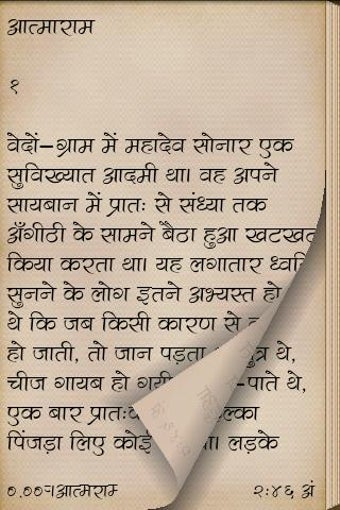 आत्माराम
१
वेदों-ग्राम में महादेव सोनार एक
सुविख्यात आदमी था। वह अपने
सायबान में प्रातः से संध्या तक
अँगीठी के सामने बैठा हुआ खटखट
किया करता था। यह लगातार ध्वनि
सुनने के लोग इतने अभ्यस्त हो
थे कि जब किसी कारण से
हो जाती, तो जान पड़ता थे,
चीज गायब हो गयी -पाते थे,
एक बार प्रातः
पिंजड़ा लिए कोई लड़के
०.००१आत्माराम २:४६ अं